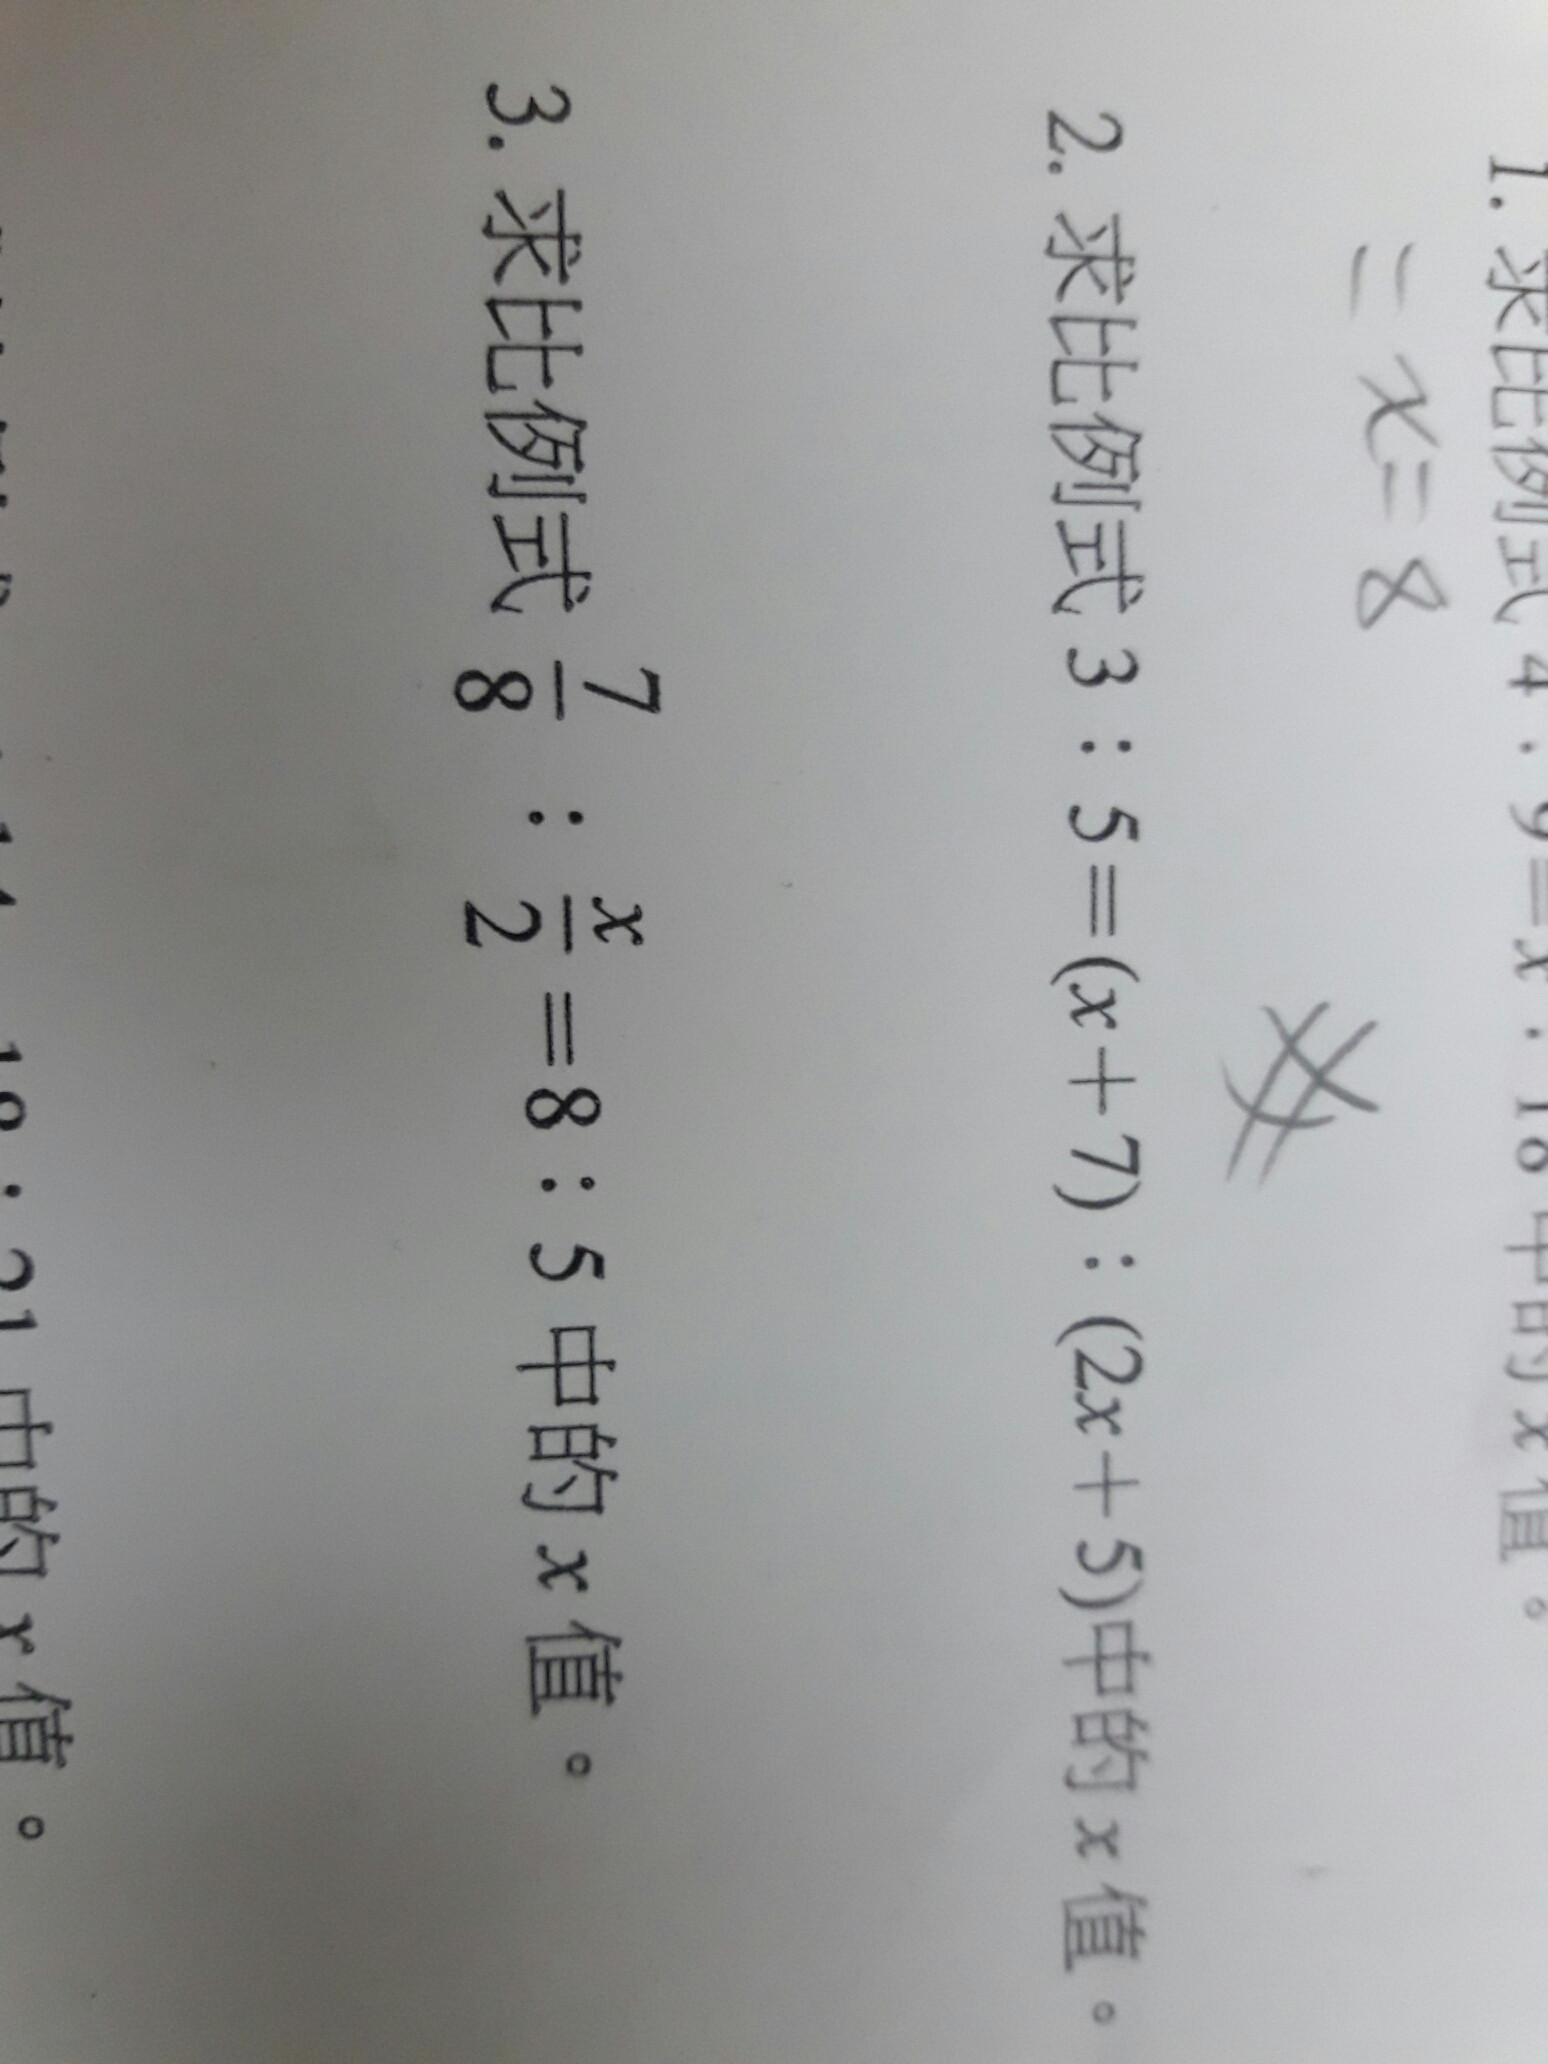 1. 求比例式 4：9＝x：18 中的 x 值。
= x = 8
2. 求比例式 3：5＝(x＋7)：(2x＋5)中的 x 值。
3. 求比例式 7/8：x/2＝8：5 中的 x 值。
18：21 中的 x 值。